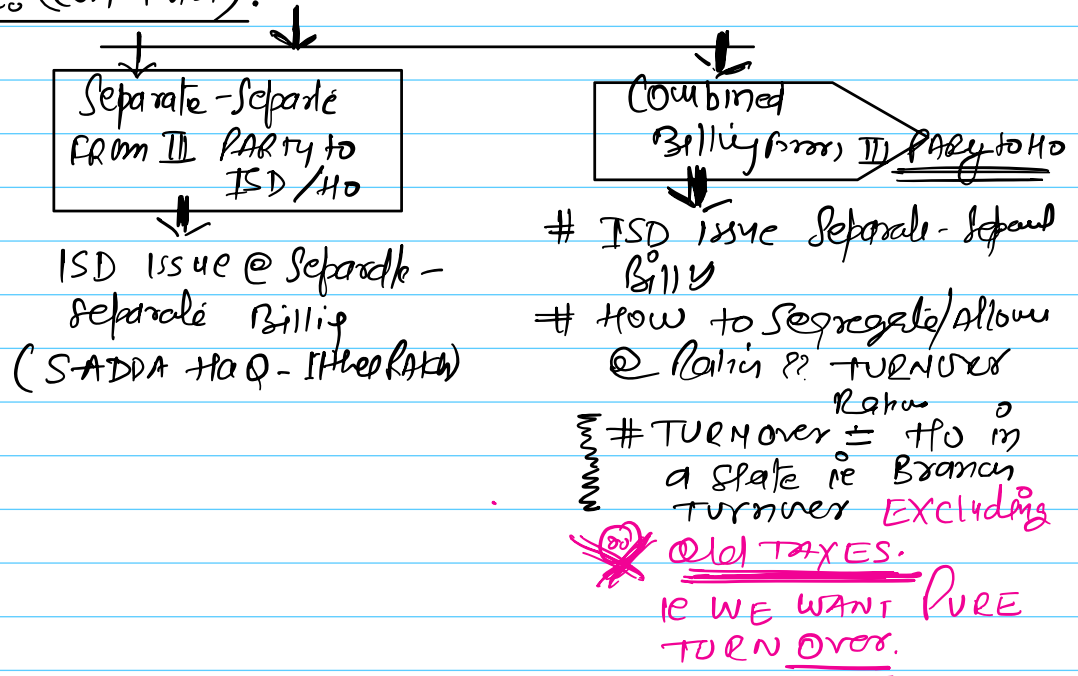 Separate - Separlé
FROM III PARTY to
ISD/HO
ISD issue @ Separdle -
Separalé Billig
(SADDA HaQ -
Combined
Billig from III PARy to HO
# ISD issue Separale - Sepaul
Billy
# How to Segregate/Allow
@ Ratio ?? TURNOver
Ratio
# TURNOver = HO in
a State ie Branch
Turnover EXCluding
Old TAXES.
ie WE WANT PURE
TURN Over.